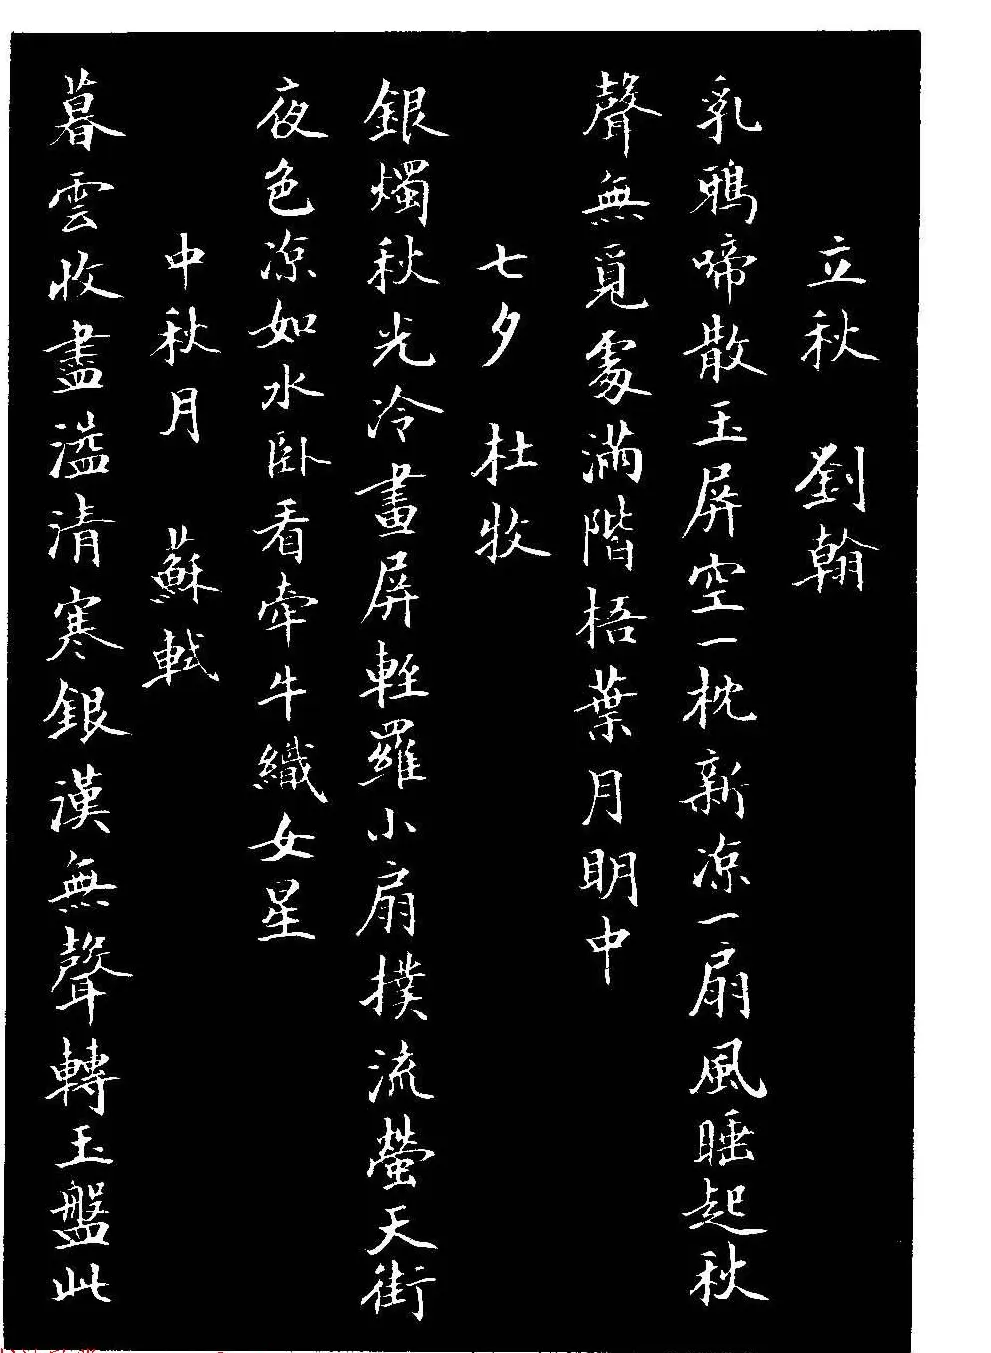 立秋 劉翰
乳鴉啼散玉屏空一枕新凉一扇風睡起秋
聲無覓處滿階梧葉月明中
七夕 杜牧
銀燭秋光冷畫屏輕羅小扇撲流螢天街
夜色凉如水卧看牽牛織女星
中秋月 蘇軾
暮雲收盡溢清寒銀漢無聲轉玉盤此